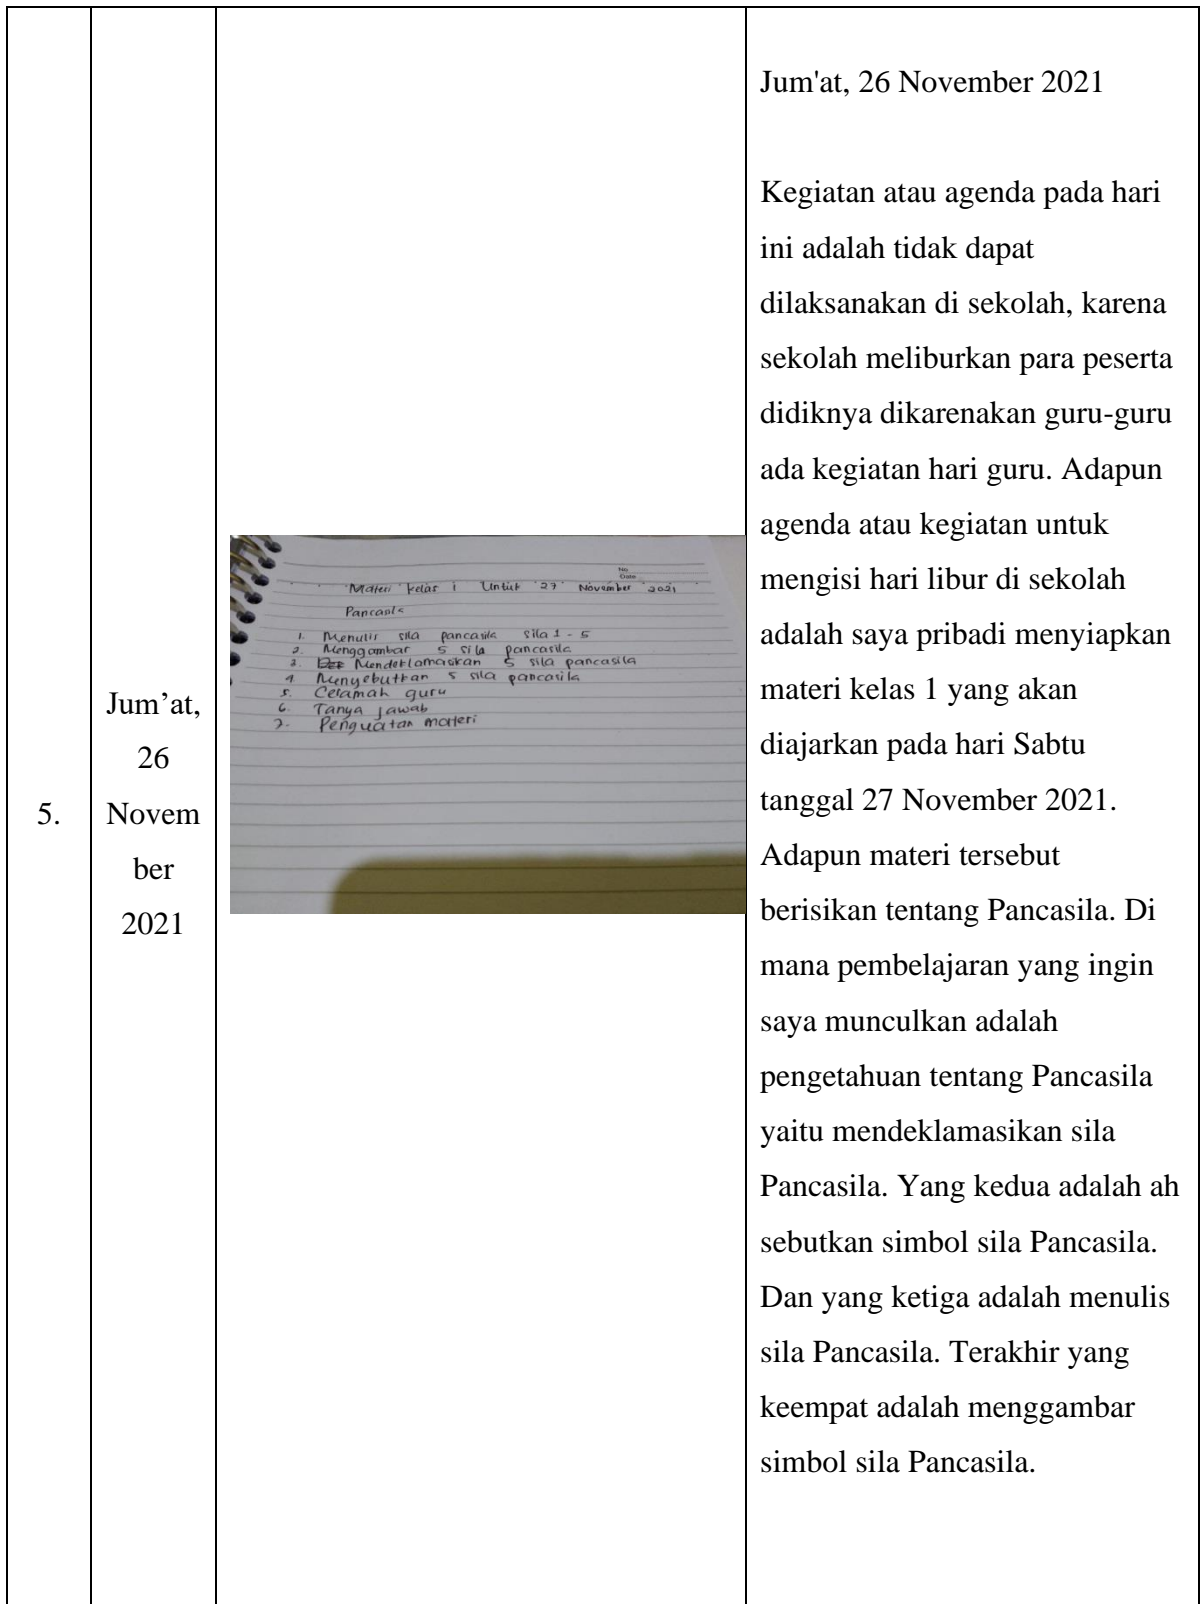 5.
Jum’at,
26
Novem
ber
2021
No
Date
Materi kelas 1 Untuk 27 November 2021
Pancasila
1. Menulis sila pancasila sila 1 - 5
2. Menggambar 5 sila pancasila
3. Mendeklamasikan 5 sila pancasila
4. Menyebutkan 5 sila pancasila
5. Ceramah guru
6. Tanya jawab
7. Penguatan materi
Jum'at, 26 November 2021
Kegiatan atau agenda pada hari
ini adalah tidak dapat
dilaksanakan di sekolah, karena
sekolah meliburkan para peserta
didiknya dikarenakan guru-guru
ada kegiatan hari guru. Adapun
agenda atau kegiatan untuk
mengisi hari libur di sekolah
adalah saya pribadi menyiapkan
materi kelas 1 yang akan
diajarkan pada hari Sabtu
tanggal 27 November 2021.
Adapun materi tersebut
berisikan tentang Pancasila. Di
mana pembelajaran yang ingin
saya munculkan adalah
pengetahuan tentang Pancasila
yaitu mendeklamasikan sila
Pancasila. Yang kedua adalah ah
sebutkan simbol sila Pancasila.
Dan yang ketiga adalah menulis
sila Pancasila. Terakhir yang
keempat adalah menggambar
simbol sila Pancasila.